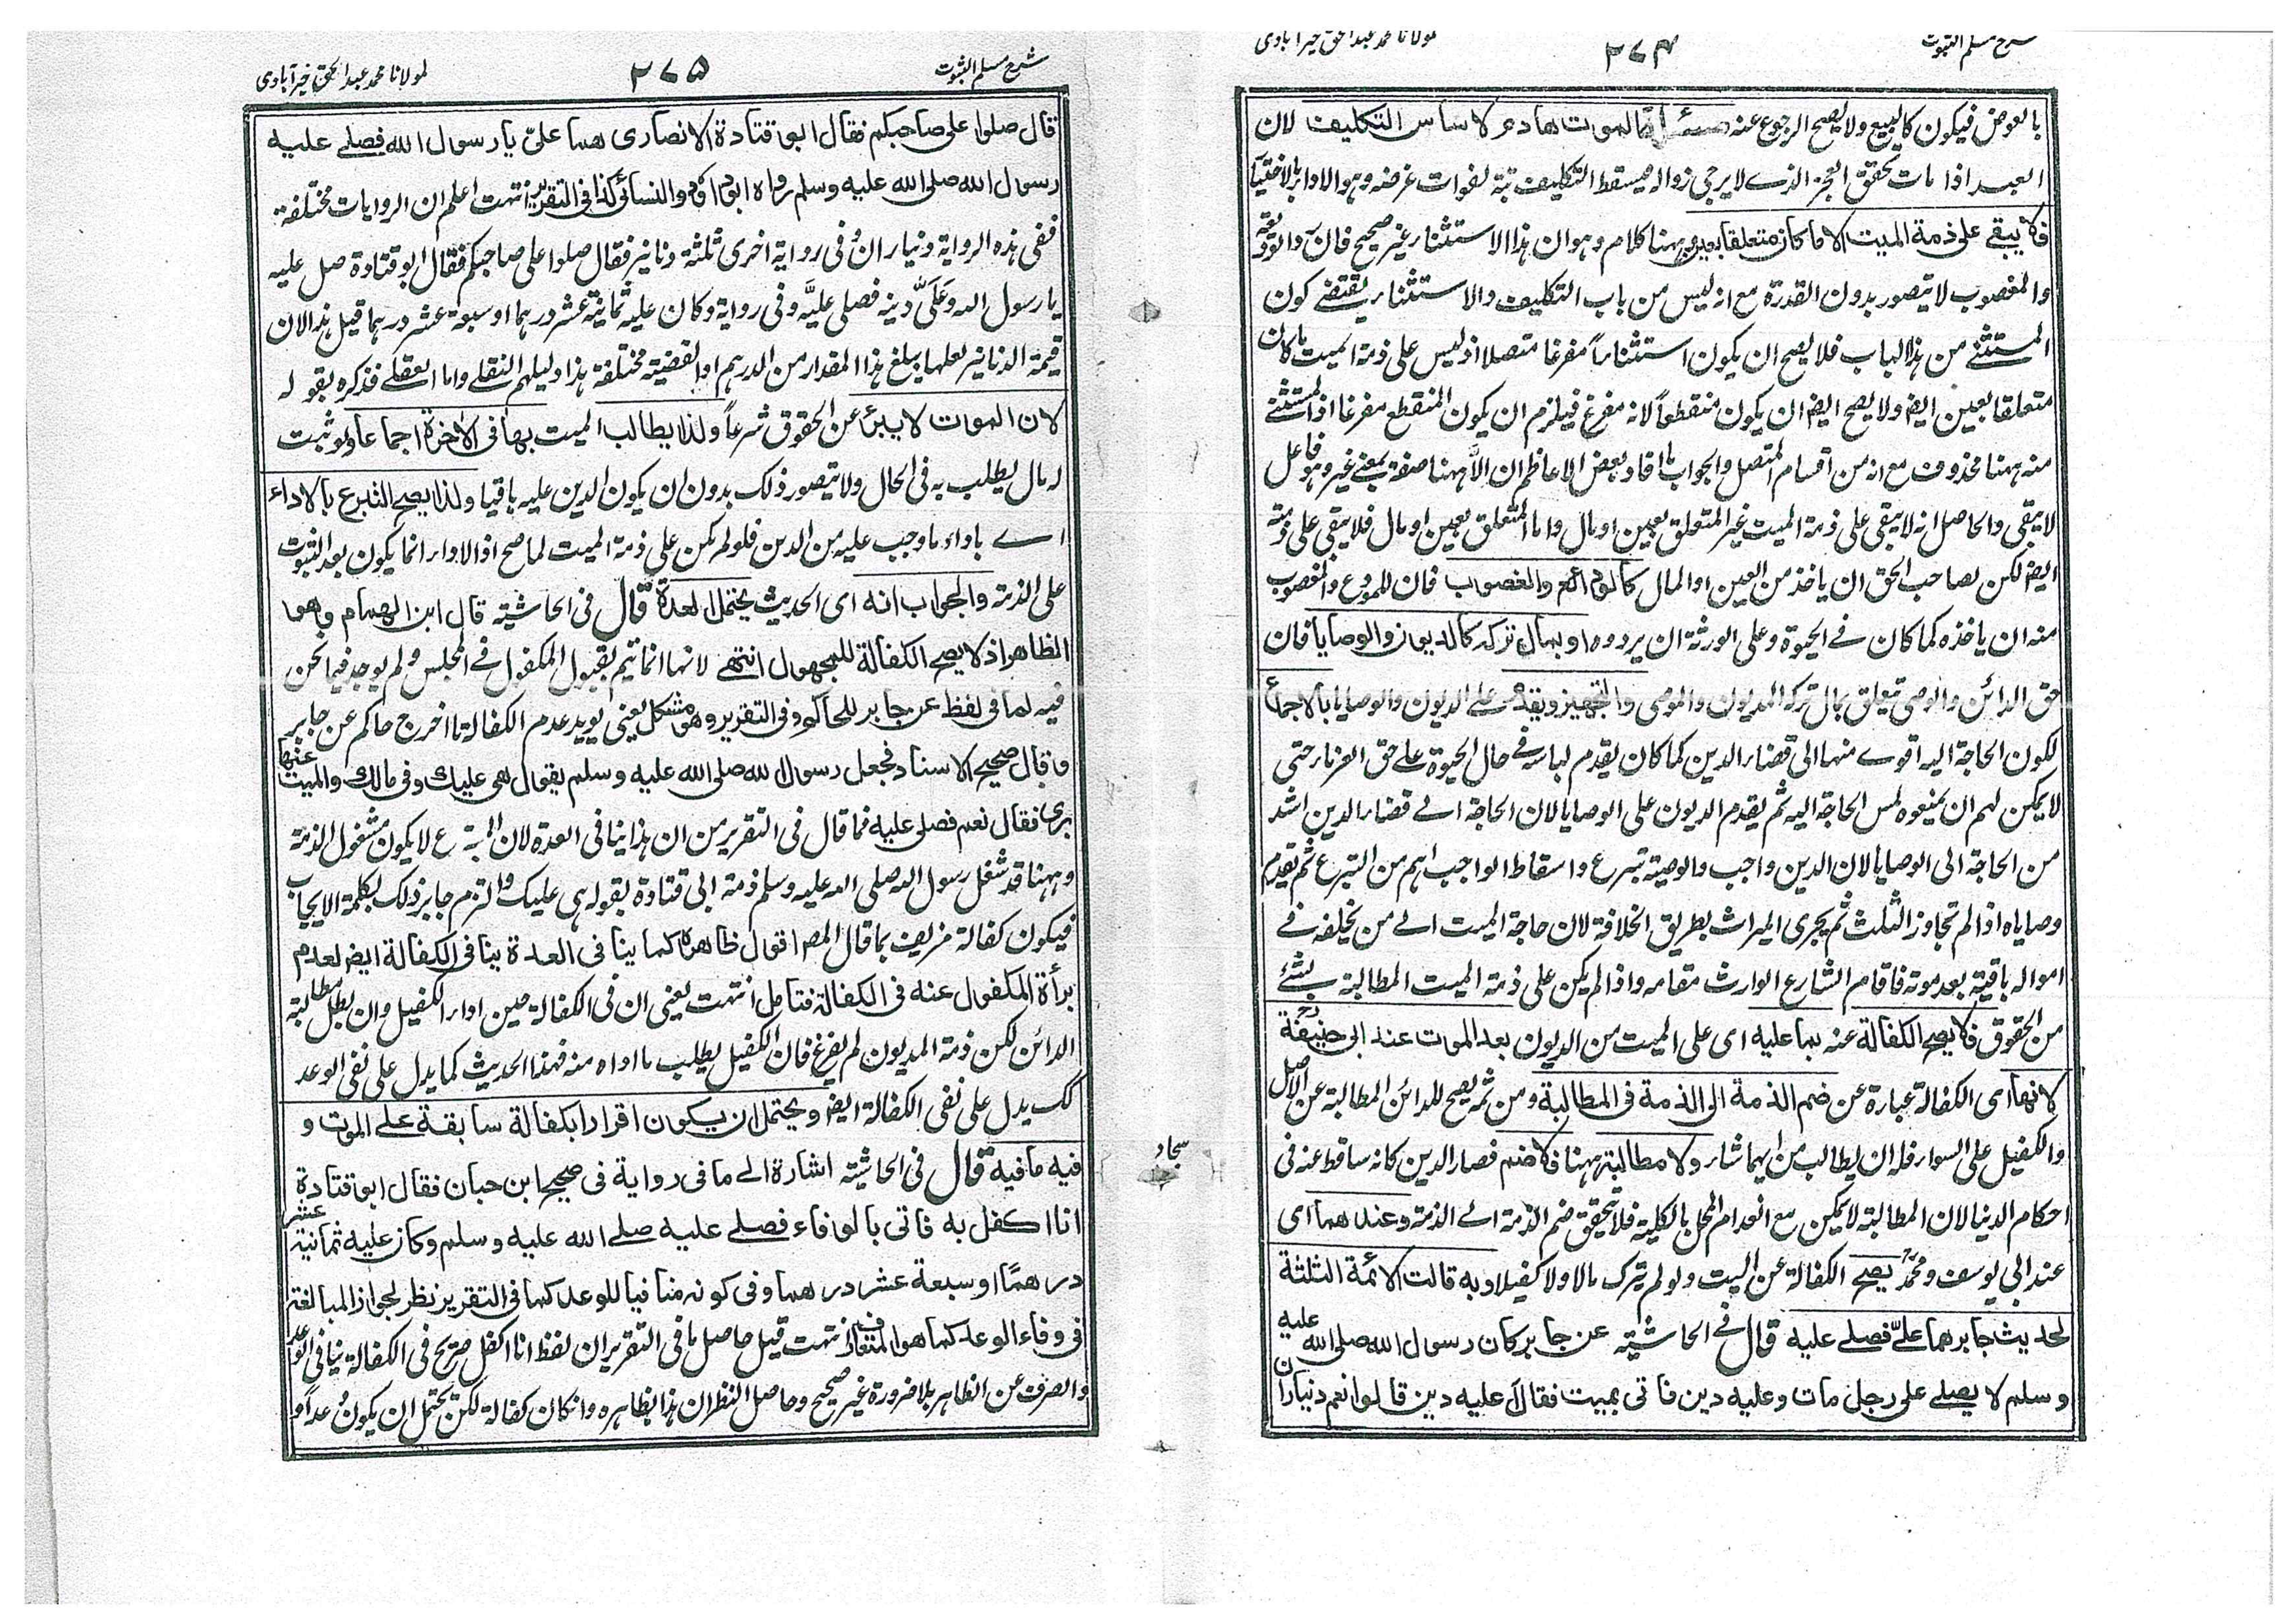 شرح مسلم الثبوت
٢٧٤
مولانا محمد عبد الحق خیرآبادی
بالعوض فيكون كالبيع ولا يصح الرجوع عنه مسئلة الموت هادم لاساس التكليف لان
العبد اذا مات تحقق العجز الذے لا يرجى زواله فيسقط التكليف تبة لفوات غرضه وهو الاداء بالاختيار
فلا يبقى على ذمة الميت الا ما كان متعلقا بعين وههنا كلام وهو ان هذا الاستثناء غير صحيح فان الوديعة
والمغصوب لا يتصور بدون القدرة مع انه ليس من باب التكليف والاستثناء يقتضے كون
المستثنے من هذا الباب فلا يصح ان يكون استثناءً مفرغا متصلا اذ ليس على ذمة الميت ما كان
متعلقا بعين ايضا ولا يصح ايضا ان يكون منقطعاً لانه مفرغ فيلزم ان يكون المنقطع مفرغا اذ المستثنے
منه ههنا محذوف مع انه من اقسام المتصل والجواب ما افاد بعض الاعاظم ان الّا ههنا صفة بمعنے غير وهو فاعل
لا يبقى والحاصل انه لا يبقى على ذمة الميت غير المتعلق بعين او مال واما المتعلق بعين او مال فلا يبقى على ذمة
ايضا لكن لصاحب الحق ان ياخذ من العين او المال كالودائع والغصوب فان للمودع والمغصوب
منه ان ياخذه كما كان فے الحيوة وعلى الورثة ان يردوه او بمال تركه كالديون والوصايا فان
حق الدائن والوصى تيعلق بمال تركه المديون والموصى والتجهيز ويقدم علے الديون والوصايا بالاجماع
لكون الحاجة اليه اقوے منها الى قضاء الدين كما كان يقدم لباسه فے حال الحيوة علے حق الغرماء حتى
لا يمكن لهم ان يمنعوه لمس الحاجة اليه ثم يقدم الديون على الوصايا لان الحاجة الے قضاء الدين اشد
من الحاجة الى الوصايا لان الدين واجب والوصية تبرع واسقاط الواجب اهم من التبرع ثم يقدم
وصاياه اذا لم تجاوز الثلث ثم يجرى الميراث بطريق الخلافة لان حاجة الميت الے من يخلفه فے
امواله باقية بعد موته فاقام الشارع الوارث مقامه واذا لم يكن على ذمة الميت المطالبة بشئے
من الحقوق فلا يصح الكفالة عنه بما عليه اى على الميت من الديون بعد الموت عند ابى حنيفة رح
لانها اى الكفالة عبارة عن ضم الذمة الى الذمة فى المطالبة ومن ثمه يصح للدائن المطالبة عن الاصل
والكفيل على السواء فله ان يطالب من ايهما شاء ولا مطالبة ههنا فلا ضم فصار الدين كانه ساقط عنه فى
احكام الدنيا لان المطالبة لا يمكن مع انعدام المحل بالكلية فلا تحقق ضم الذمة الے الذمة وعندهما اى
عند ابى يوسف ومحمد رح يصح الكفالة عن الميت ولو لم يترك مالا ولا كفيلا وبه قالت الائمة الثلثة
لحديث جابر هما علىّ فصلے عليه قال فے الحاشية عن جابر كان رسول الله صلى الله عليه
وسلم لا يصلے على رجل مات وعليه دين فاتى بميت فقال أعليه دين قالوا نعم ديناران
سجاد
شرح مسلم الثبوت
٢٧٥
لمولانا محمد عبد الحق خیرآبادی
قال صلوا على صاحبكم فقال ابو قتادة الانصارى هما علىّ يا رسول الله فصلے عليه
رسول الله صلى الله عليه وسلم رواه ابوداؤد والنسائى كذا فى التقرير انتهت اعلم ان الروايات مختلفة
ففى هذه الرواية ديناران وفى رواية اخرى ثلثة دنانير فقال صلوا على صاحبكم فقال ابو قتادة صل عليه
يا رسول الله وعَلَىَّ دينه فصلى عليه وفى رواية وكان عليه ثمانية عشر درهما او سبعة عشر درهما قيل هذا لان
قيمة الدنانير لعلها يبلغ هذا المقدار من الدرهم او القضية مختلفة هذا دليلهم النقلے واما العقلے فذكره بقوله
لان الموت لا يبرئ عن الحقوق شرعاً ولذا يطالب الميت بها فى الاخرة اجماعا ولو ثبت
له مال يطلب به فى الحال ولا يتصور ذلك بدون ان يكون الدين عليه باقيا ولذا يصح التبرع بالاداء
اے باداء ما وجب عليه من الدين فلو لم يكن على ذمة الميت لما صح اذ الاداء انما يكون بعد الثبوت
على الذمة والجواب انه اى الحديث يحتمل العدة قال فى الحاشية قال ابن الهمام وهو
الظاهر اذ لا يصح الكفالة للمجهول انتهے لانها انما تيم بقبول المكفول فے المجلس ولم يوجد فيما نحن
فيه لما فى لفظ عن جابر للحاكم وفى التقرير وهو مشكل يعنى يويد عدم الكفالة ما اخرج حاكم عن جابر
وقال صحيح الاسناد فجعل رسول الله صلى الله عليه وسلم يقول هى عليك وفى مالك والميت عنها
برئ فقال نعم فصلى عليه فما قال فى التقرير من ان هذا ينافى العدة لان المتبرع لا يكون مشغول الذمة
وههنا قد شغل رسول الله صلى الله عليه وسلم ذمة ابى قتادة بقوله هى عليك والتزم جابر ذلك بكلمة الايجاب
فيكون كفالة مزيف بما قال المص اقول ظاهره كما ينافى العدة ينافى الكفالة ايضا لعدم
برأة المكفول عنه فى الكفالة فتامل انتهت يعنى ان فى الكفالة حين اداء الكفيل وان بطل مطالبة
الدائن لكن ذمة المديون لم يفرغ فان الكفيل يطلب ما اداه منه فهذا الحديث كما يدل على نفى الوعد
كك يدل على نفى الكفالة ايضا ويحتمل ان يكون اقرارا بكفالة سابقة علے الموت و
فيه ما فيه قال فى الحاشية اشارة الے ما فى رواية فى صحيح ابن حبان فقال ابو قتادة
انا اكفل به فاتى بالوفاء فصلے عليه صلے الله عليه وسلم وكان عليه ثمانية عشر
درهمًا او سبعة عشر درهما وفى كونه منافيا للوعد كما فى التقرير نظر لجواز المبالغة
فى وفاء الوعد كما هو المتعارف انتهت قيل حاصل ما فى التقرير ان لفظ انا اكفل صريح فى الكفالة ينافى الوعد
والصرف عن الظاهر بلا ضرورة غير صحيح وحاصل النظر ان هذا بظاهره وانكان كفالة لكن يحتمل ان يكون وعداً او